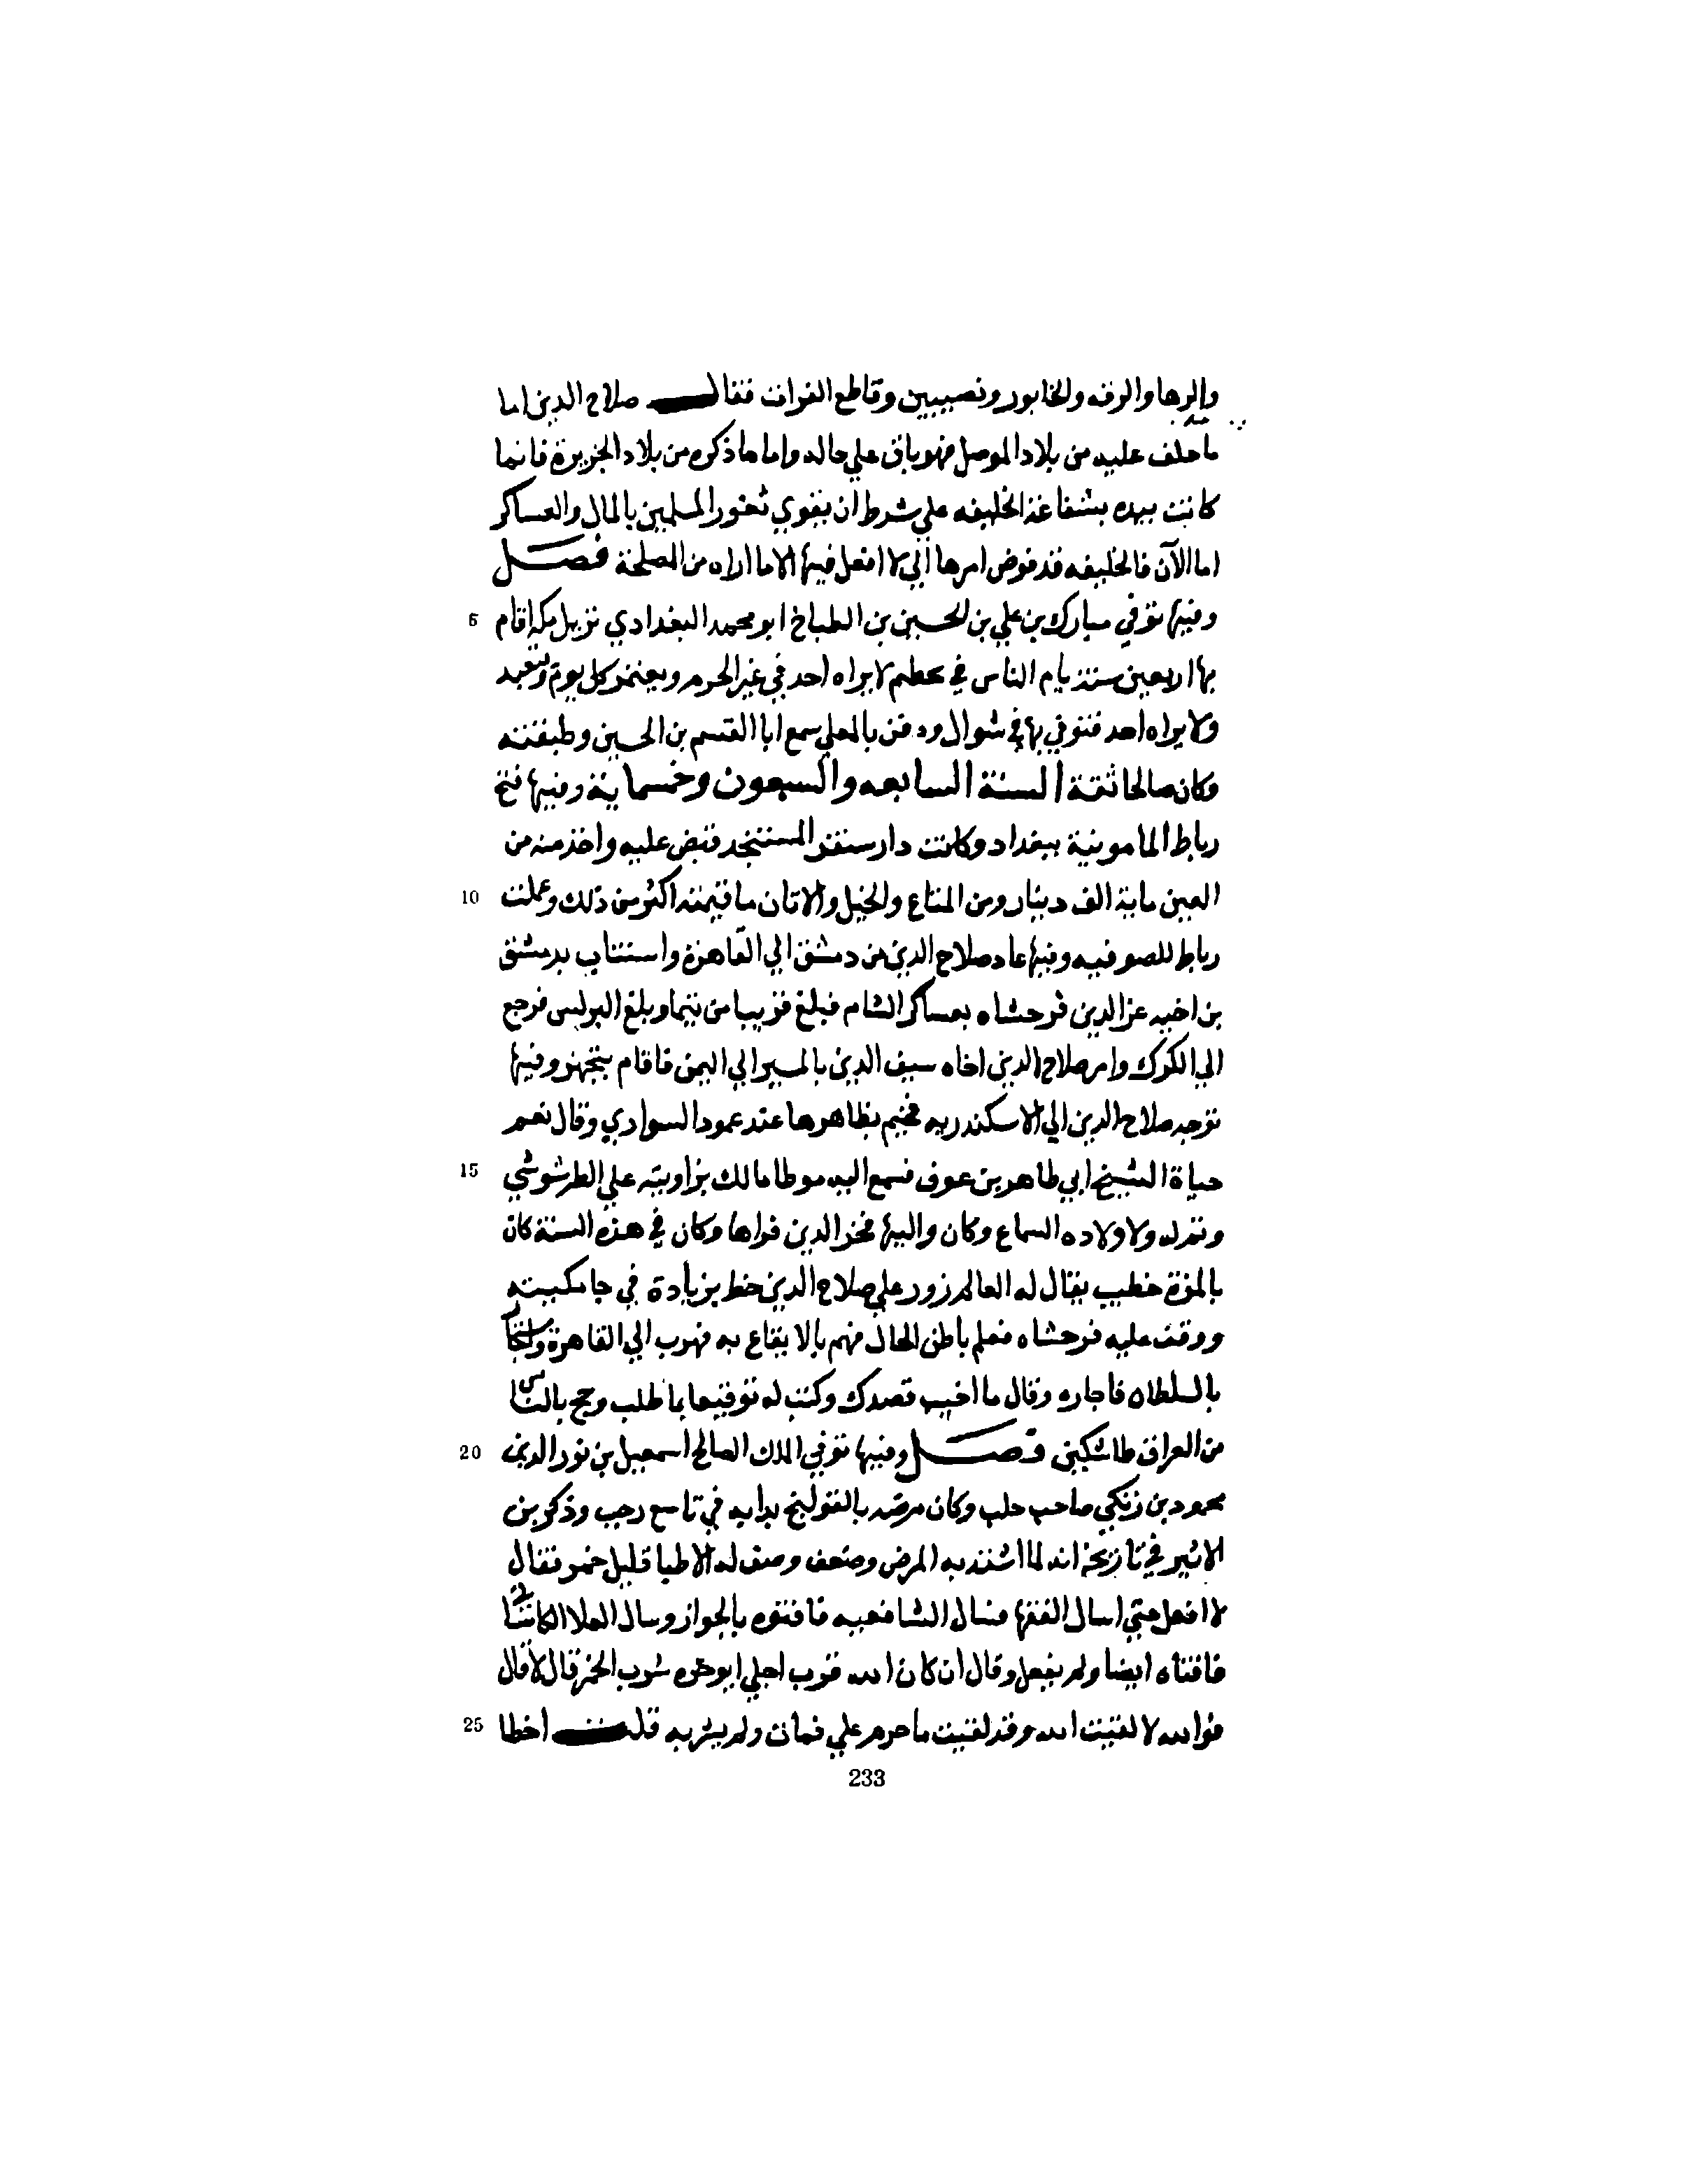 والرها والرقه والخابور ونصيبين وقاطع الفرات فقال صلاح الدين اما
ما حلف عليه من بلاد الموصل فهو باق علي حاله واما ما ذكره من بلاد الجزيرة فانما
كانت بيده بشفاعة الخليفه علي شرط ان يقوي ثغور المسلمين بالمال والعساكر
اما الآن فالخليفه قد فوض امرها الي لا افعل فيها الا ما اراه من المصلحة فصل
5 وفيها توفي مبارك بن علي بن الحسين بن الطباخ ابو محمد البغدادي نزيل مكة اقام
بها اربعين سنة يام الناس في لا يراه احد في غير الحرم ويعتمر كل يوم ويتعبد
ولا يراه احد فتوفي بها في شوال ودفن بالمعلي سمع ابا القسم بن الحسين وطبقته
وكان صالحا ثقة السنة السابعه والسبعون وخمسماية وفيها فتح
رباط المامونية ببغداد وكانت دار سنقر المستنجد فقبض عليه واخذ منه من
10 العين ماية الف دينار ومن المتاع والخيل والاتان ما قيمته اكثر من ذلك وعملت
رباط للصوفيه وفيها عاد صلاح الدين من دمشق الي القاهرة واستناب بدمشق
بن اخيه عز الدين فرحشاه بعساكر الشام فبلغ قريبا من تيما وبلغ البرلس فرجع
الي الكرك وامر صلاح الدين اخاه سيف الدين بالمسير الي اليمن فاقام يتجهز وفيها
توجه صلاح الدين الي الاسكندريه فخيم بظاهرها عند عمود السواري وقال نغم
15 حياة الشيخ ابي طاهر بن عوف فسمع اليه موطا مالك بزاويته علي الطرشوشي
وتم له ولاولاده السماع وكان واليها فخر الدين قراها وكان في هذه السنة كان
بالمزة خطيب يقال له العالم زور علي صلاح الدين خط بزيادة في جامكيته
ووقف عليه فرحشاه فعلم باطن الحال فهم بالايقاع به فهرب الي القاهرة
بالسلطان فاجاره وقال ما اخيب قصدك وكتب له توقيعا بما طلب وحج بالناس
20 من العراق طاشتكين فصل وفيها توفي الملك الصالح اسمعيل بن نور الدين
محمود بن زنكي صاحب حلب وكان مرضه بالقولنج بدا به في تاسع رجب وذكر بن
الاثير في تاريخه انه لما اشتد به المرض وضعف وصف له الاطبا قليل خمر فقال
لا افعل حتي اسال الفقها فسال الشافعيه فافتوه بالجواز وسال العلا الكاشاني
فافتاه ايضا ولم يفعل وقال ان كان الله قرب اجلي ايوخره شرب الخمر قال لا قال
25 فوالله لا لقيت الله وقد لقيت ما حرم علي فمات ولم يشربه قلت اخطا
233